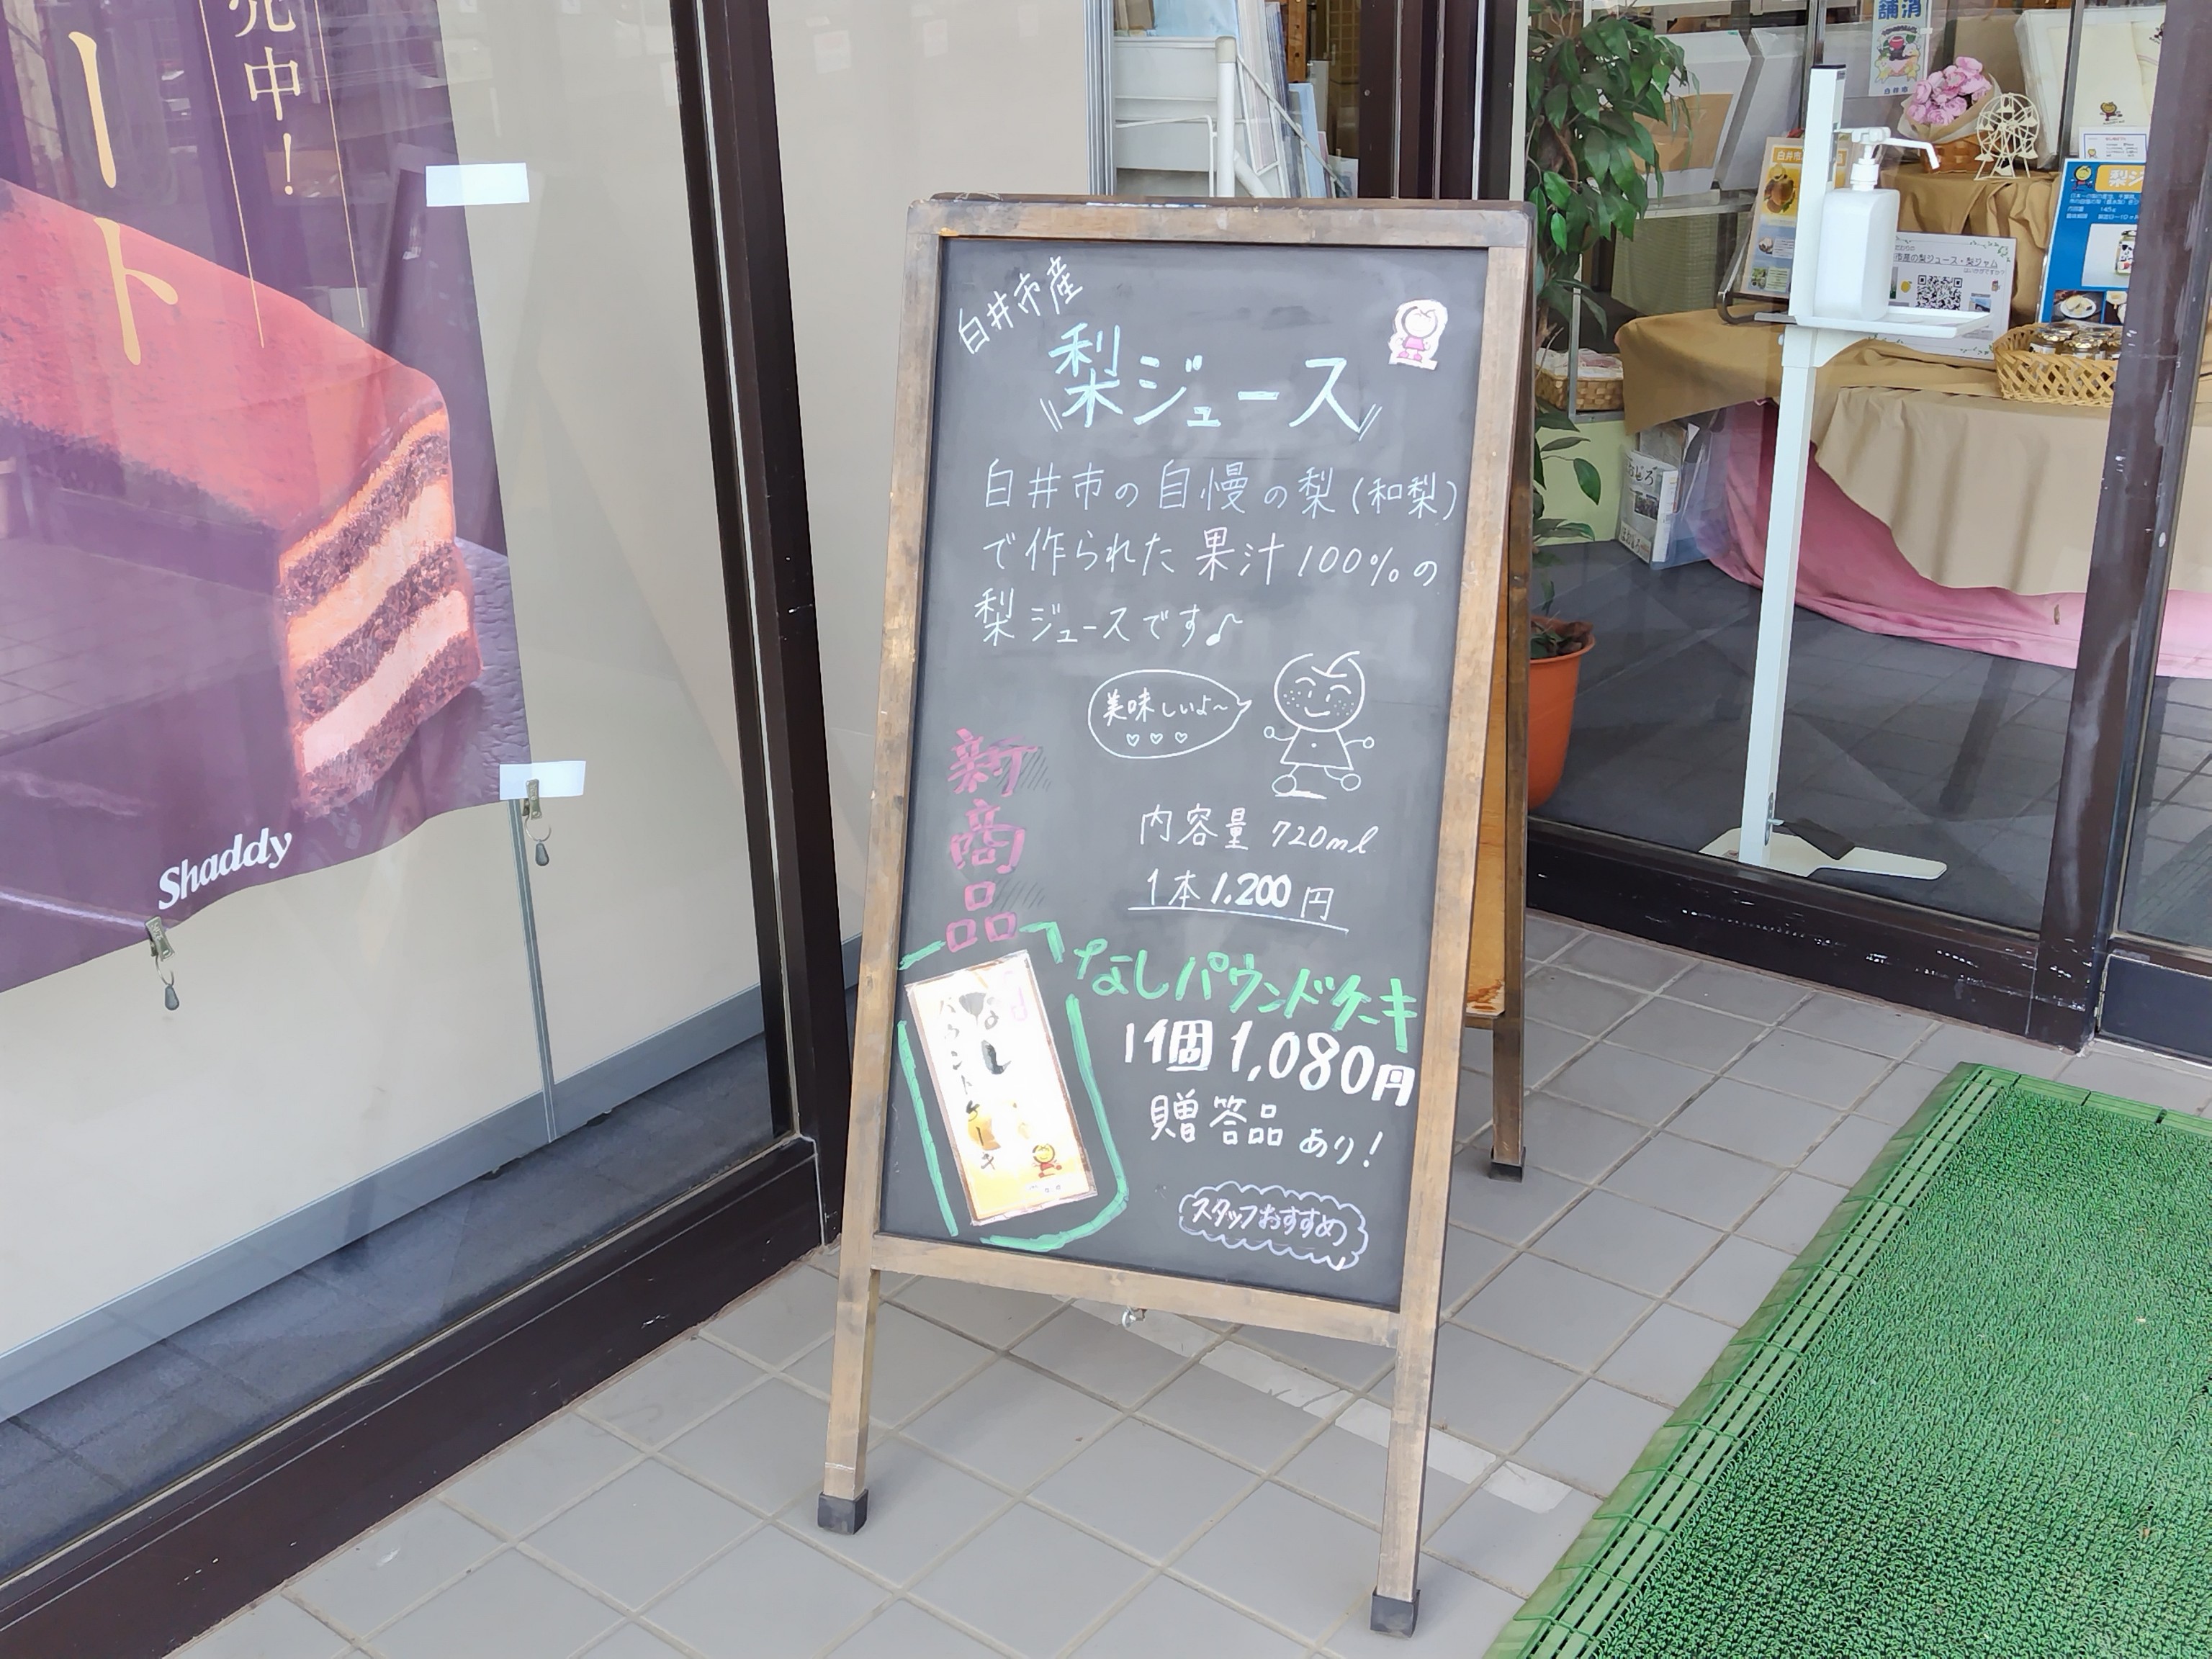 売中！
ート
Shaddy
白井市産
梨ジュース
白井市の自慢の梨(和梨)
で作られた果汁100%の
梨ジュースです♪
美味しいよ～
♡♡♡
新商品
内容量 720ml
1本1.200円
なしパウンドケーキ
1個1,080円
贈答品あり！
スタッフおすすめ
なし
パウンドケーキ
白井市
市産の梨ジュース・梨ジャム
梨ジ